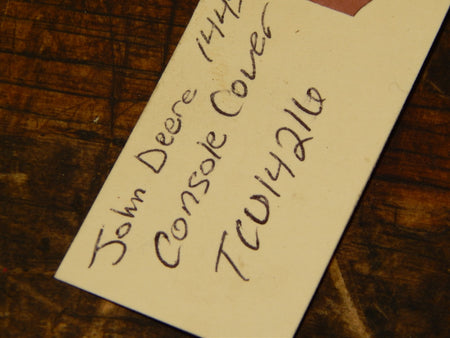 John Deere 144
Console Cover
TCU14216